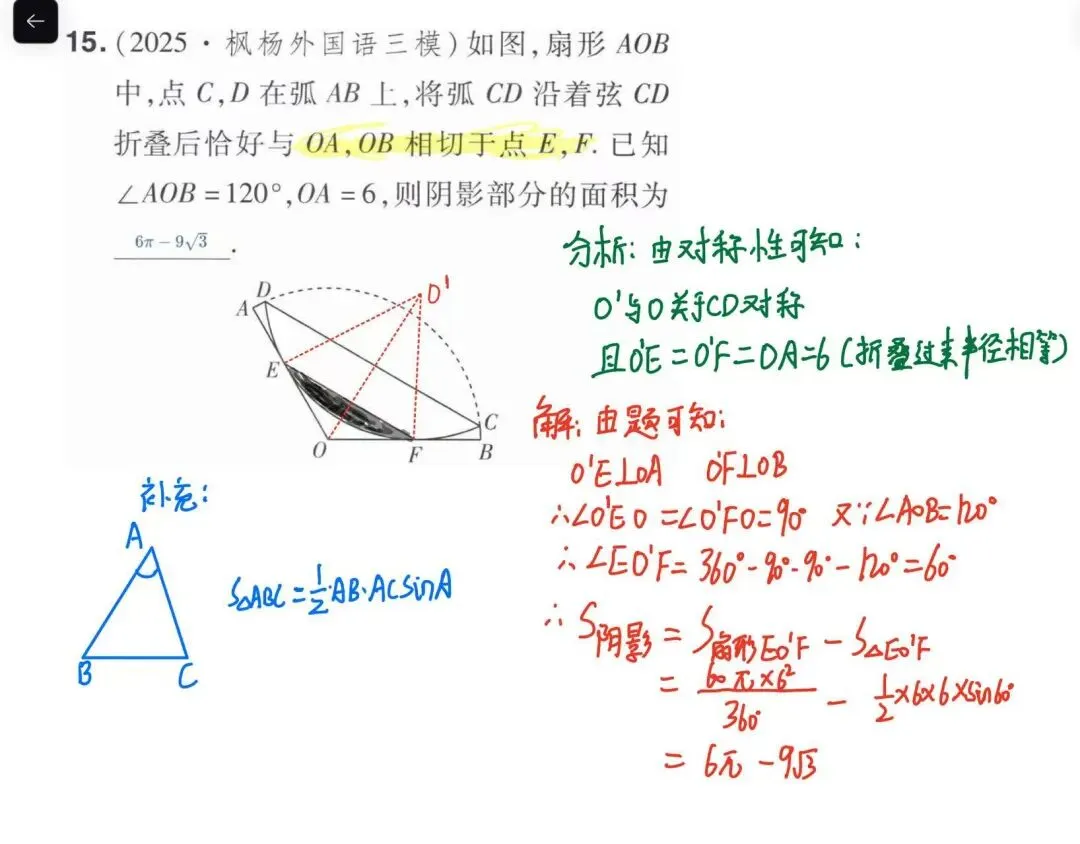 15. (2025 · 枫杨外国语三模) 如图,扇形 AOB
中,点 C,D 在弧 AB 上,将弧 CD 沿着弦 CD
折叠后恰好与 OA,OB 相切于点 E,F. 已知
∠AOB=120°,OA=6,则阴影部分的面积为
6π-9√3 .
D
A
O'
E
C
O
F
B
分析: 由对称性可知:
O'与O关于CD对称
且O'E=O'F=OA=6(折叠过来半径相等)
解: 由题可知:
O'E⊥OA O'F⊥OB
∴∠O'EO=∠O'FO=90° 又∵∠AOB=120°
∴∠EO'F=360°-90°-90°-120°=60°
∴S阴影=S扇形EO'F-S△EO'F
=60π×6²/360°-1/2×6×6×sin60°
=6π-9√3
补充:
A
B
C
S△ABC=1/2·AB·ACsinA